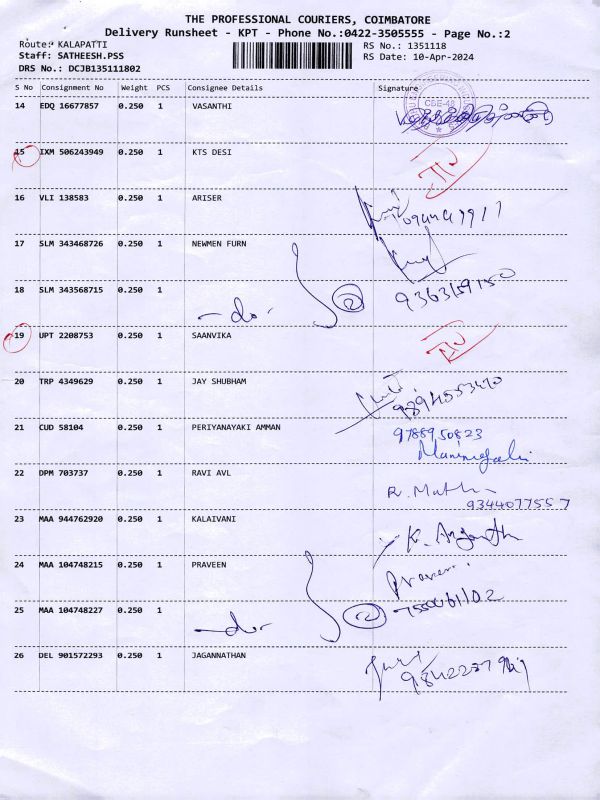 THE PROFESSIONAL COURIERS, COIMBATORE
Delivery Runsheet - KPT - Phone No.:0422-3505555 - Page No.:2
Route: KALAPATTI RS No.: 1351118
Staff: SATHEESH.PSS RS Date: 10-Apr-2024
DRS No.: DCJB135111802
S No Consignment No Weight PCS Consignee Details Signature
14 EDQ 16677857 0.250 1 VASANTHI
CBE-48
15 IXM 506243949 0.250 1 KTS DESI
16 VLI 138583 0.250 1 ARISER
17 SLM 343468726 0.250 1 NEWMEN FURN
18 SLM 343568715 0.250 1
-do- 2
19 UPT 2208753 0.250 1 SAANVIKA
20 TRP 4349629 0.250 1 JAY SHUBHAM
21 CUD 58104 0.250 1 PERIYANAYAKI AMMAN 9788950823
22 DPM 703737 0.250 1 RAVI AVL
9344077557
23 MAA 944762920 0.250 1 KALAIVANI
24 MAA 104748215 0.250 1 PRAVEEN Praveen
25 MAA 104748227 0.250 1
-do- 2
26 DEL 901572293 0.250 1 JAGANNATHAN